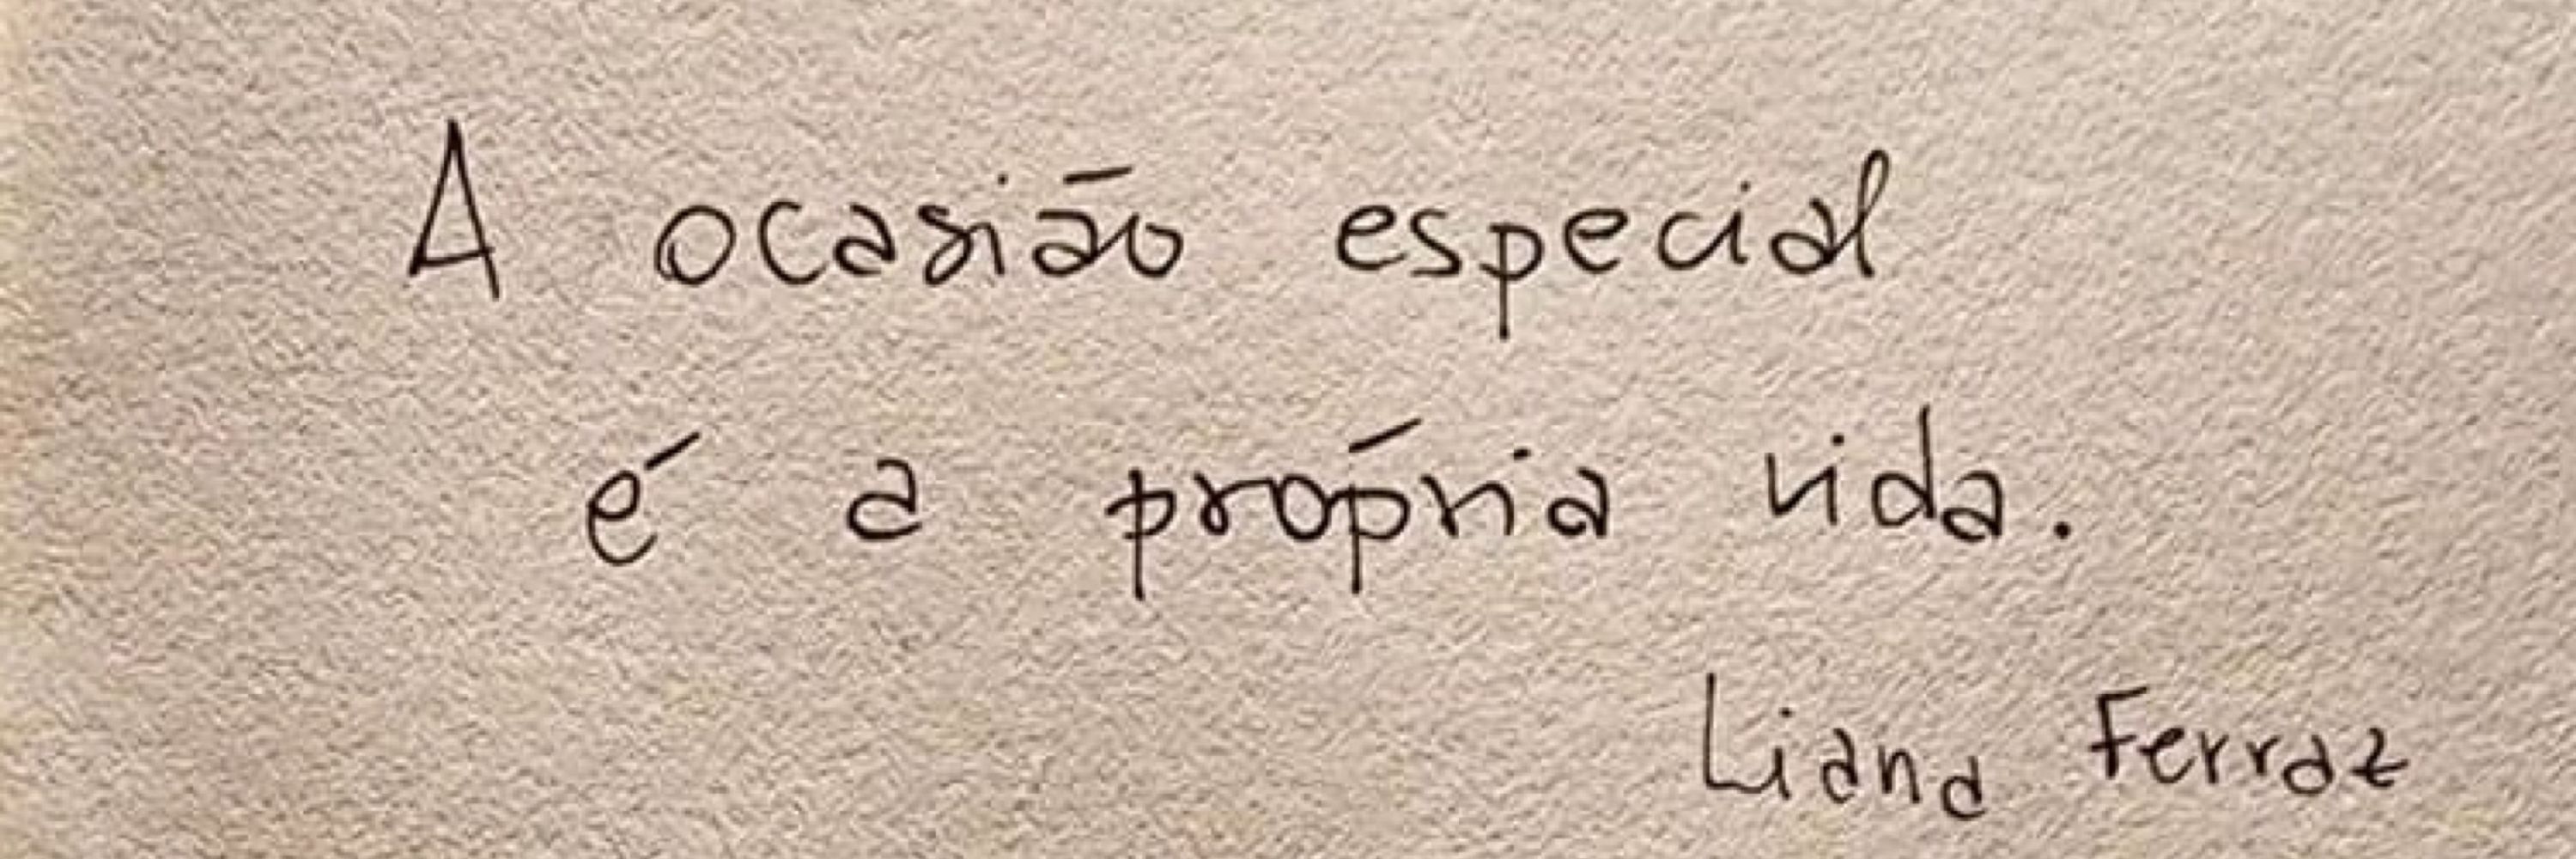 A ocasião especial
é a própria vida.
Liana Ferraz